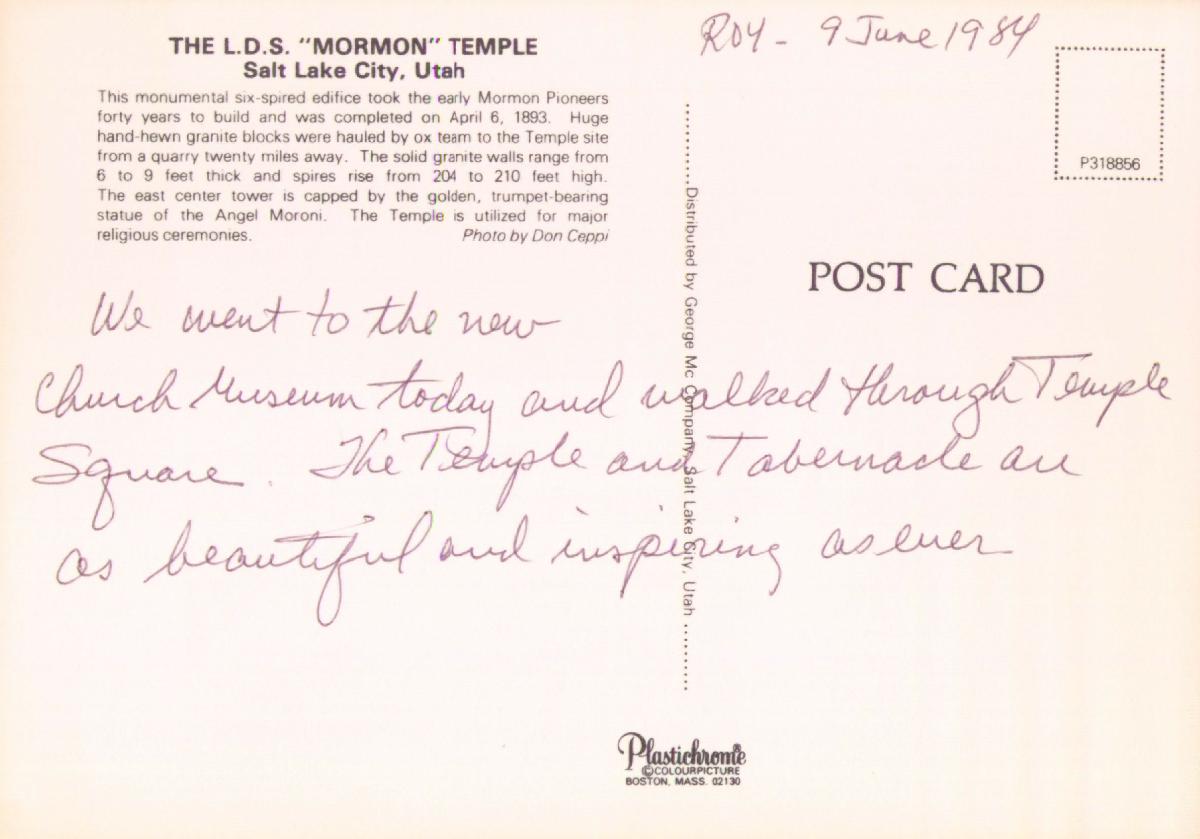 THE L.D.S. "MORMON" TEMPLE
Salt Lake City, Utah
This monumental six-spired edifice took the early Mormon Pioneers
forty years to build and was completed on April 6, 1893. Huge
hand-hewn granite blocks were hauled by ox team to the Temple site
from a quarry twenty miles away. The solid granite walls range from
6 to 9 feet thick and spires rise from 204 to 210 feet high.
The east center tower is capped by the golden, trumpet-bearing
statue of the Angel Moroni. The Temple is utilized for major
religious ceremonies. Photo by Don Ceppi
ROY - 9 June 1984
P318856
POST CARD
Distributed by George Mc Company, Salt Lake City, Utah
We went to the new
Church Museum today and walked through Temple
Square. The Temple and Tabernacle are
as beautiful and inspiring as ever
Plastichrome®
©COLOURPICTURE
BOSTON, MASS. 02130